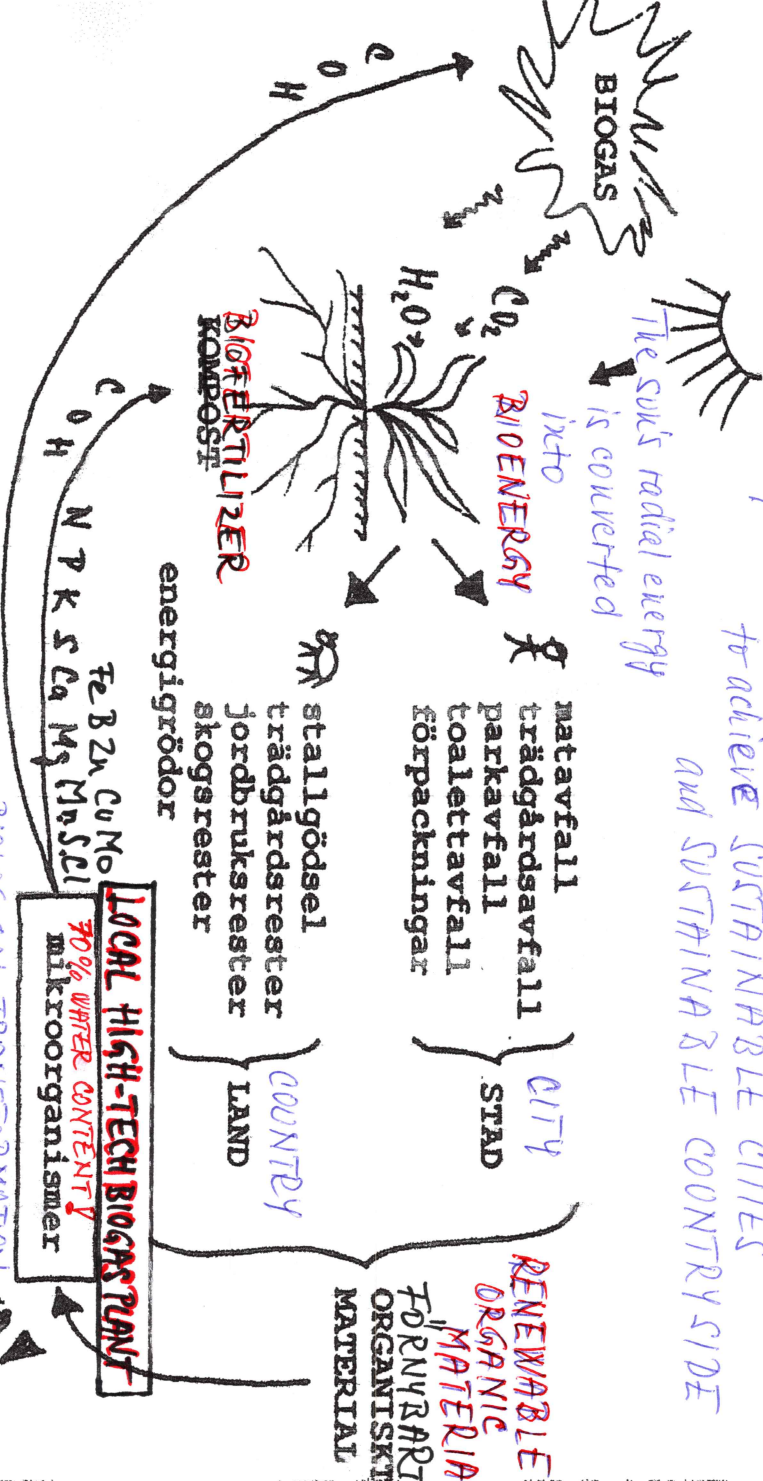 to achieve SUSTAINABLE CITIES
and SUSTAINABLE COUNTRYSIDE
The sun's radial energy
is converted
into
BIOENERGY
BIOGAS
CO2
H2O
C O H
BIOFERTILIZER
KOMPOST
C O H N P K S Ca Mg Mn S Cl
Fe B Zn Cu Mo
matavfall
trädgårdsavfall
parkavfall
toalettavfall
förpackningar
CITY
STAD
stallgödsel
trädgårdsrester
jordbruksrester
skogsrester
energigrödor
COUNTRY
LAND
RENEWABLE
ORGANIC
MATERIA
FÖRNYBART
ORGANISKT
MATERIAL
LOCAL HIGH-TECH BIOGAS PLANT
70% WATER CONTENT!
mikroorganismer